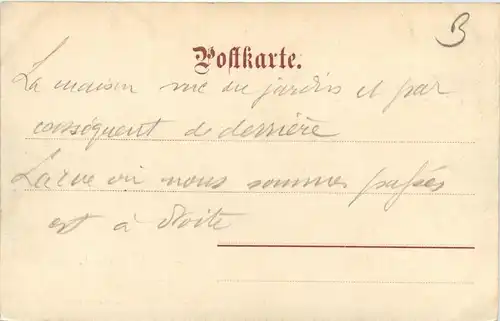 B
Postkarte.
La maison vue du jardin et par
conséquent de derrière
La rue où nous sommes passés
est à droite